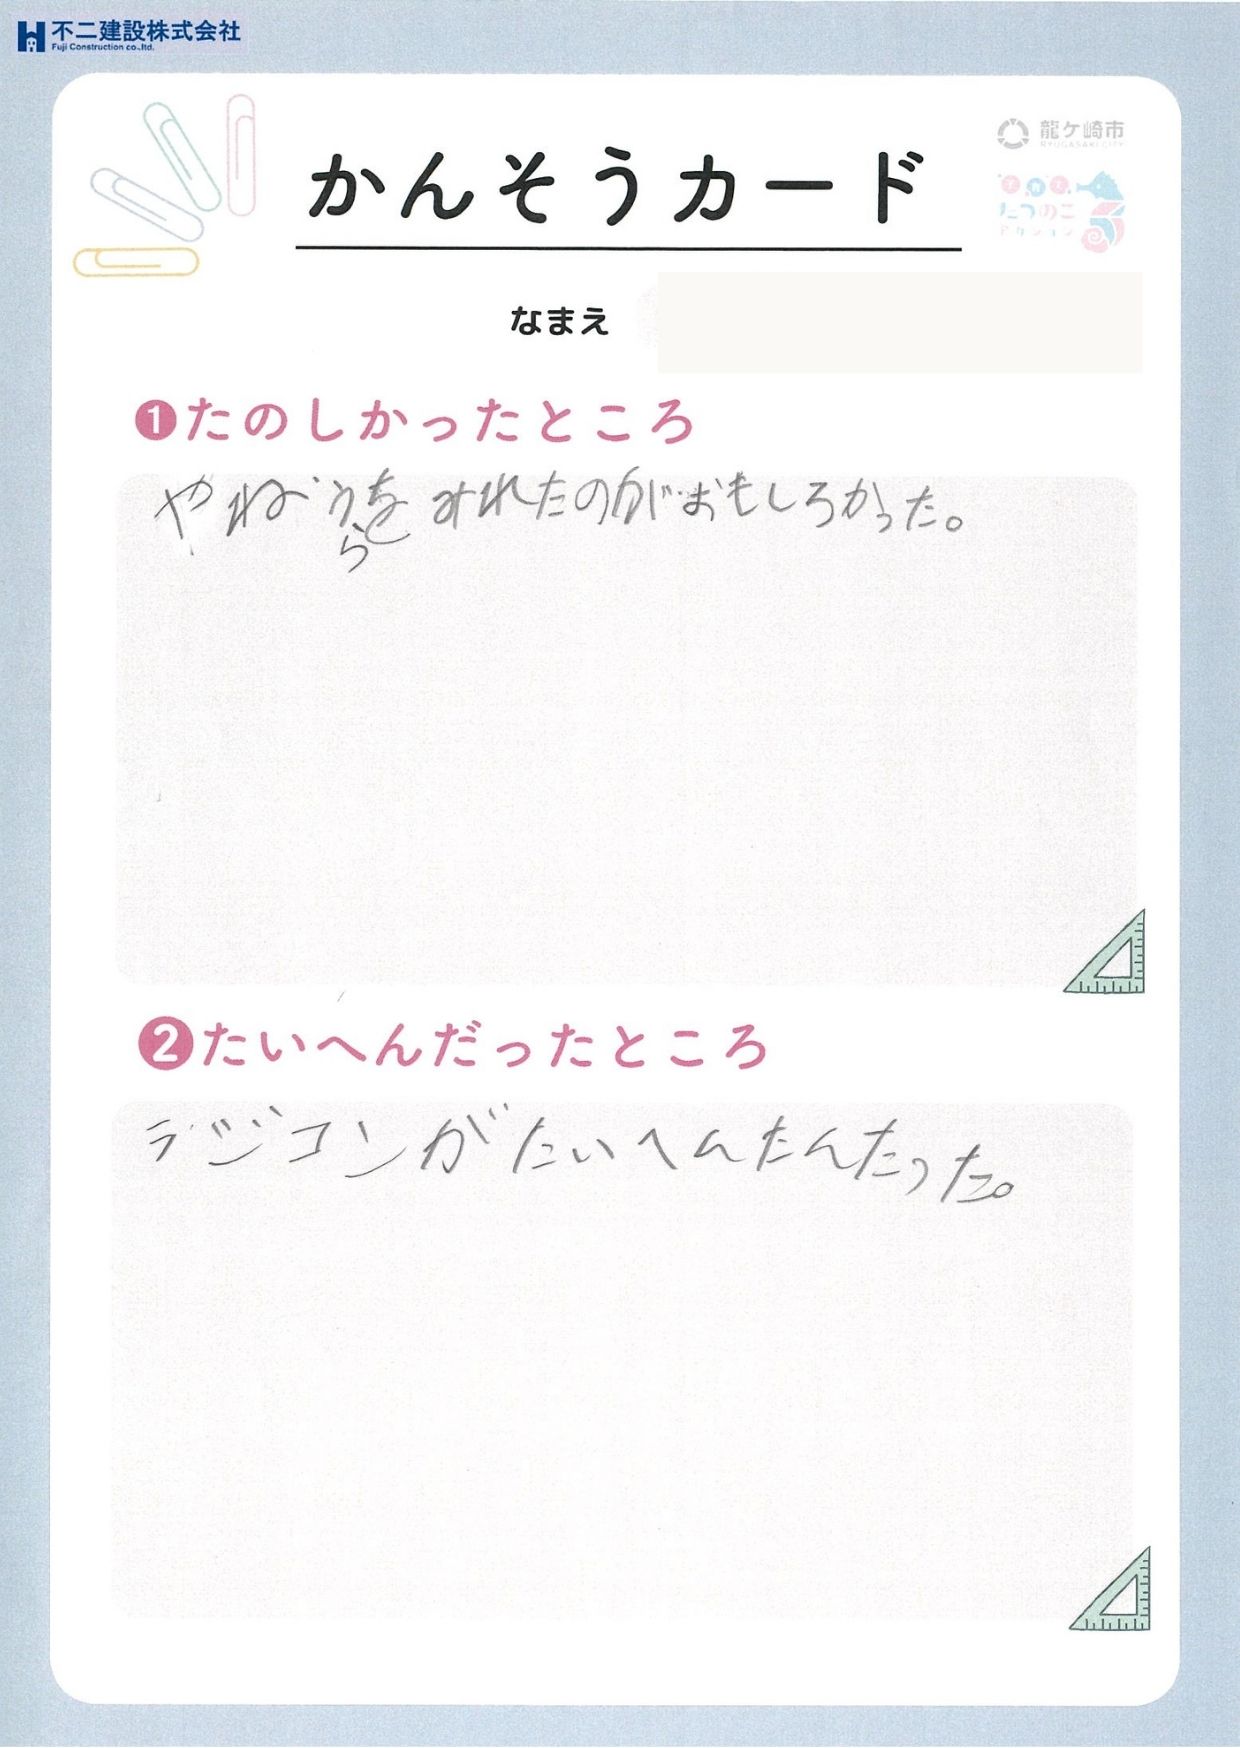 不二建設株式会社
Fuji Construction co.,ltd.
龍ケ崎市
RYUGASAKI CITY
かんそうカード
たつのこ
アクション
なまえ
❶たのしかったところ
やねうらをみれたのがおもしろかった。
❷たいへんだったところ
ラジコンがたいへんたんたった。